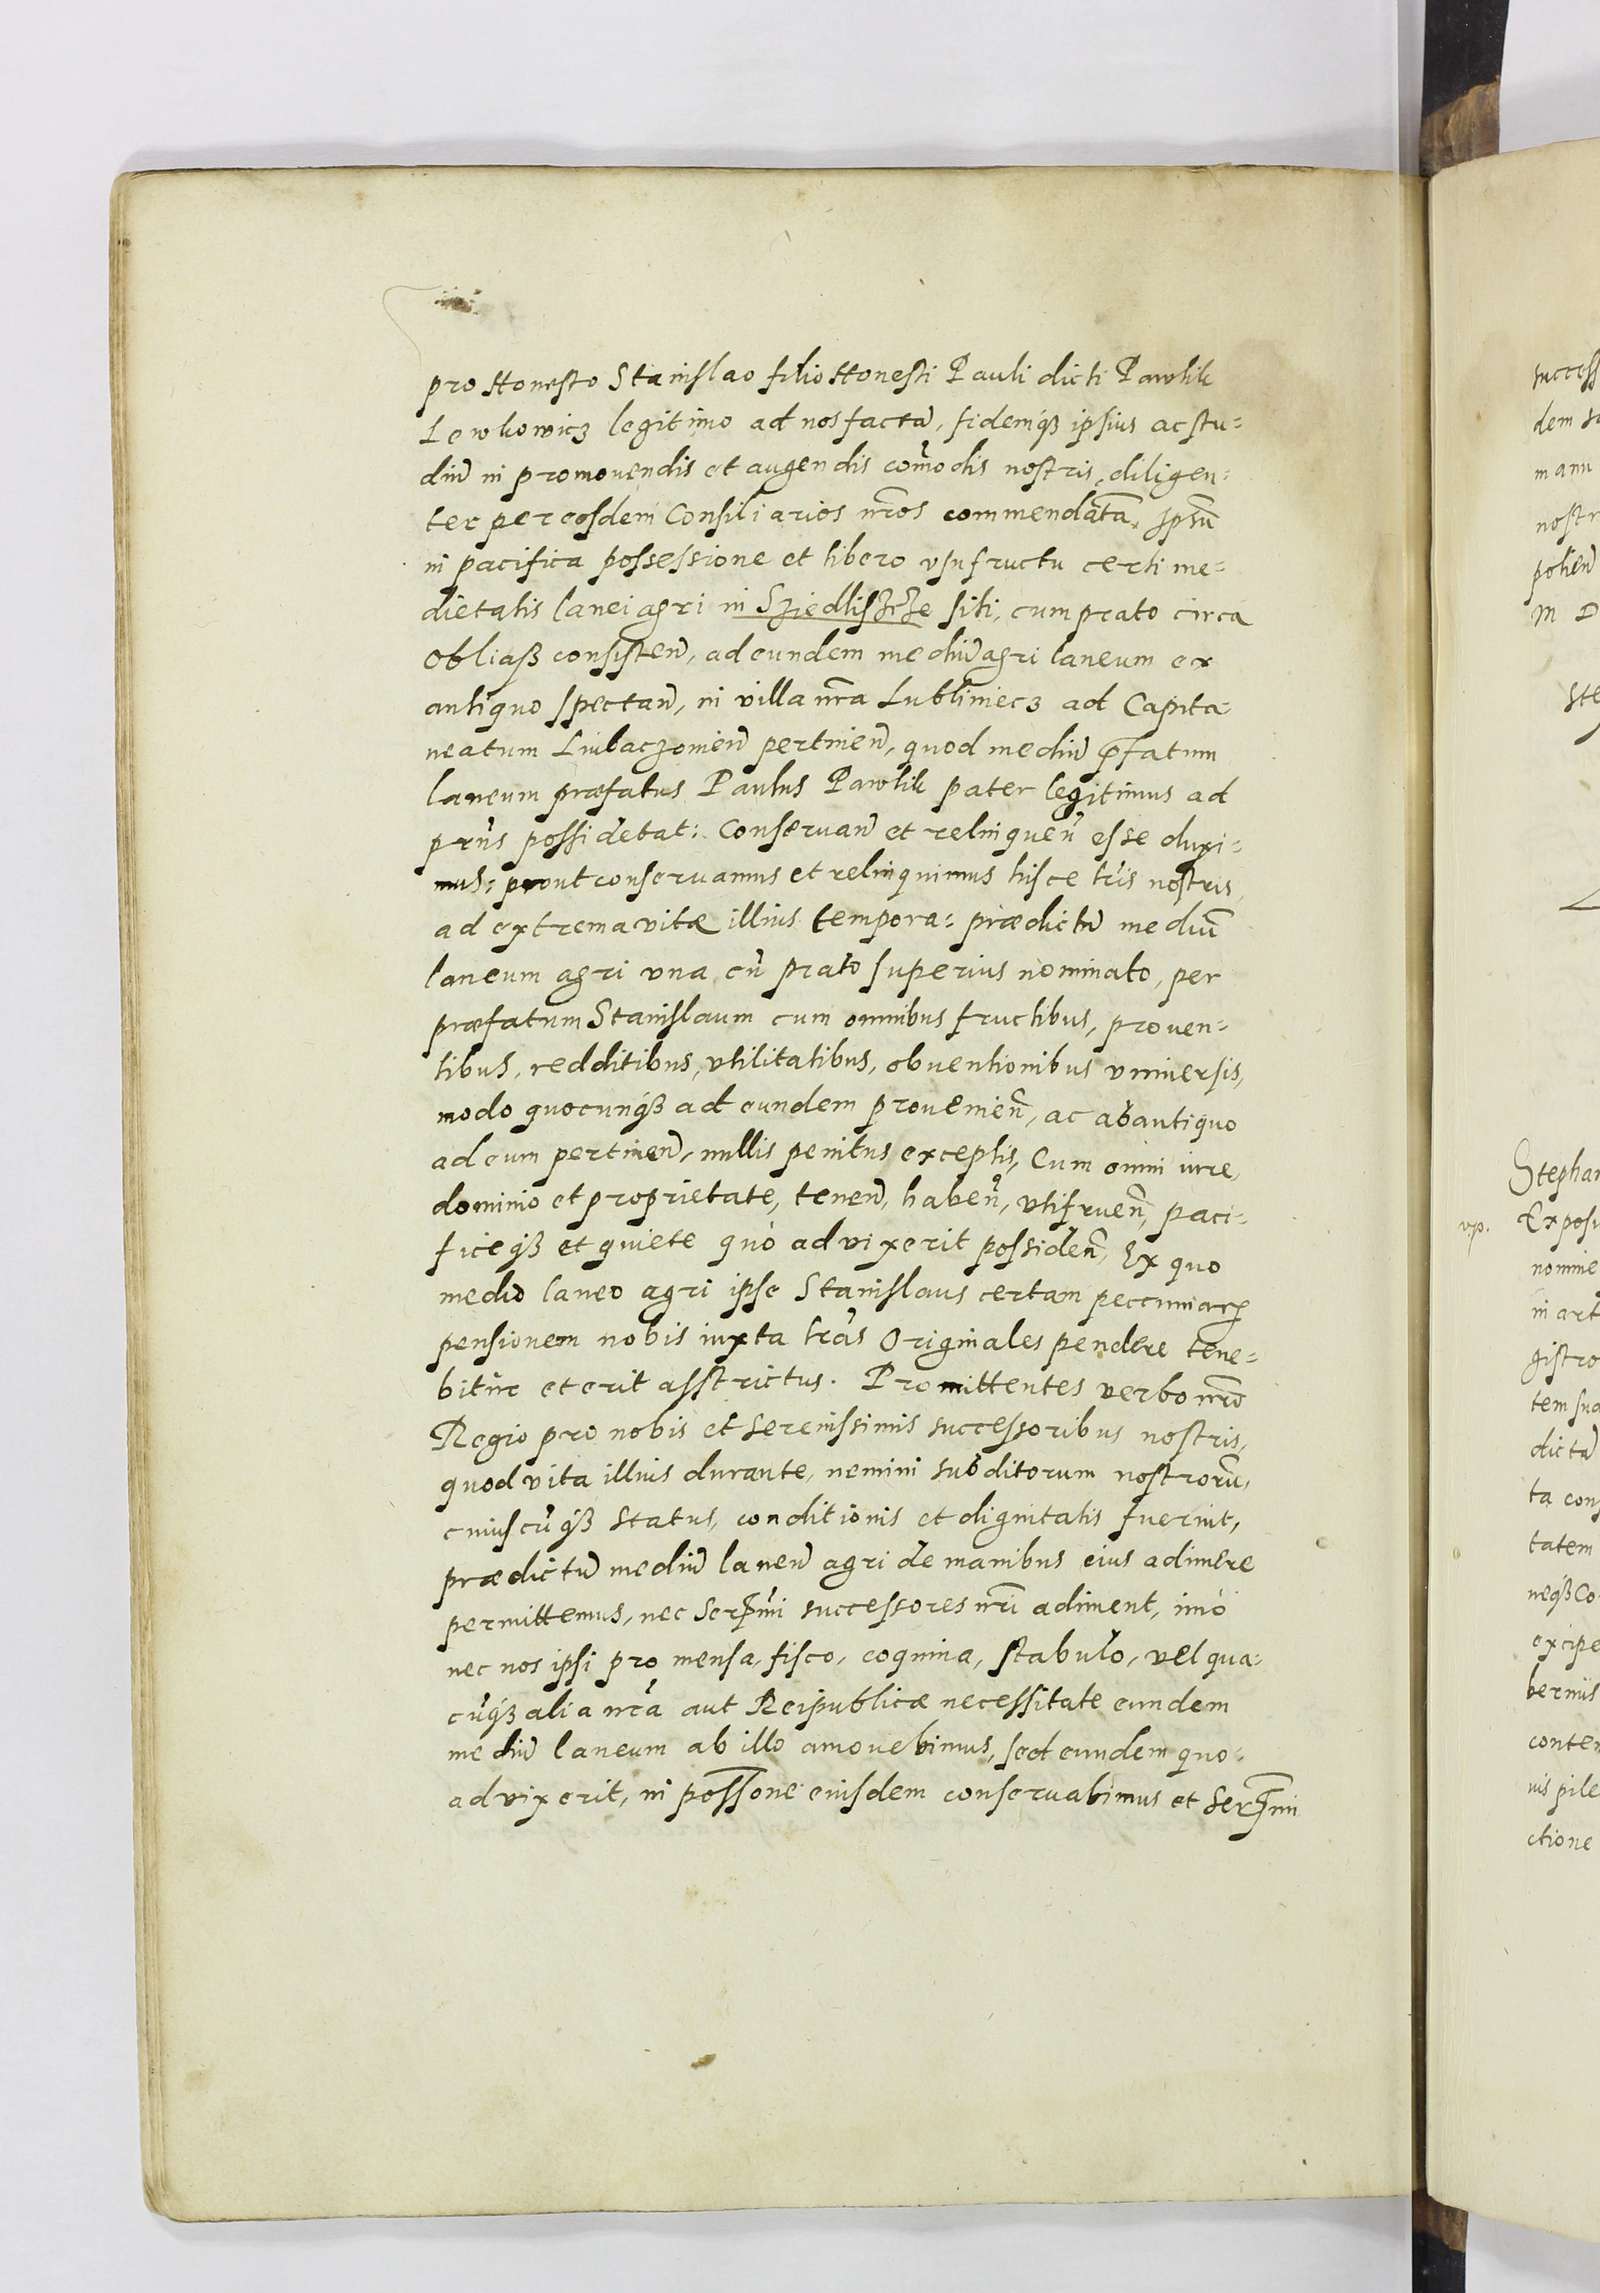 pro Honesto Stanislao filio Honesti Pauli dicti Pawlik
Lewkowicz legitimo ad nos factā, fidemq́ȝ ipsius ac stu=
diū in promouendis et augendis com̄odis nostris, diligen=
ter per eosdem Consiliarios nr̄os commendatā. Ipsū
in pacifica possessione et libero vsufructu certi me=
dietatis lanei agri in Sziedlisʒcʒe siti, cum prato circa
Obliasz consisteñ, ad eundem mediū agri laneum ex
antiquo spectañ, in villa nr̄a Lubliniecz ad Capita=
neatum Liubaczouieñ pertineñ, quod mediū p̄fatum
laneum præfatus Paulus Pawlik pater legitimus ad
priūs possidebat: Conseruañ et relinqueñ esse duxi=
mus: prout conseruamus et relinquimus hisce lr̄is nostris,
ad extrema vitæ illius tempora: prædictū mediū
laneum agri vna cū prato superius nominato, per
præfatum Stanislaum cum omnibus fructibus, prouen=
tibus, redditibus, vtilitatibus, obuentionibus vniuersis,
modo quocunq́ȝ ad eundem prouenieñ, ac ab antiquo
ad eum pertineñ, nullis penitus exceptis, Cum omni iure,
dominio et proprietate, teneñ, habeñ, vtifrueñ, paci=
ficeq́ȝ et quiete quò aduixerit possideñ, Ex quo
medio laneo agri ipse Stanislaus certam peccuniarꝝ
pensionem nobis iuxta lr̄as Originales pendere tene=
bitur et erit asstrictus. Promittentes verbo nr̄o
Regio pro nobis et Serenissimis successoribus nostris,
quod vita illius durante, nemini subditorum nostrorū,
cuiuscūq́ȝ status, conditionis et dignitatis fuerint,
prædictū mediū laneū agri de manibus eius adimere
permittemus, nec Serꝝmi successores nr̄i adiment, imò
nec nos ipsi pro mensa, fisco, coquina, stabulo, vel qua=
cūq́ȝ alia nr̄a aut Reipublicæ necessitate eundem
mediū laneum ab illo amouebimus, sed eundem quo=
aduixerit, in possone eiusdem conseruabimus et Serꝝmi
success
dem
manu
nostr
potieñ
Stephan
vp. Exposi
nomine
in art
gistro
tem sua
dictā
ta cons
tatem
neq́ȝ Co
excipe
conter
uis pile
ctione